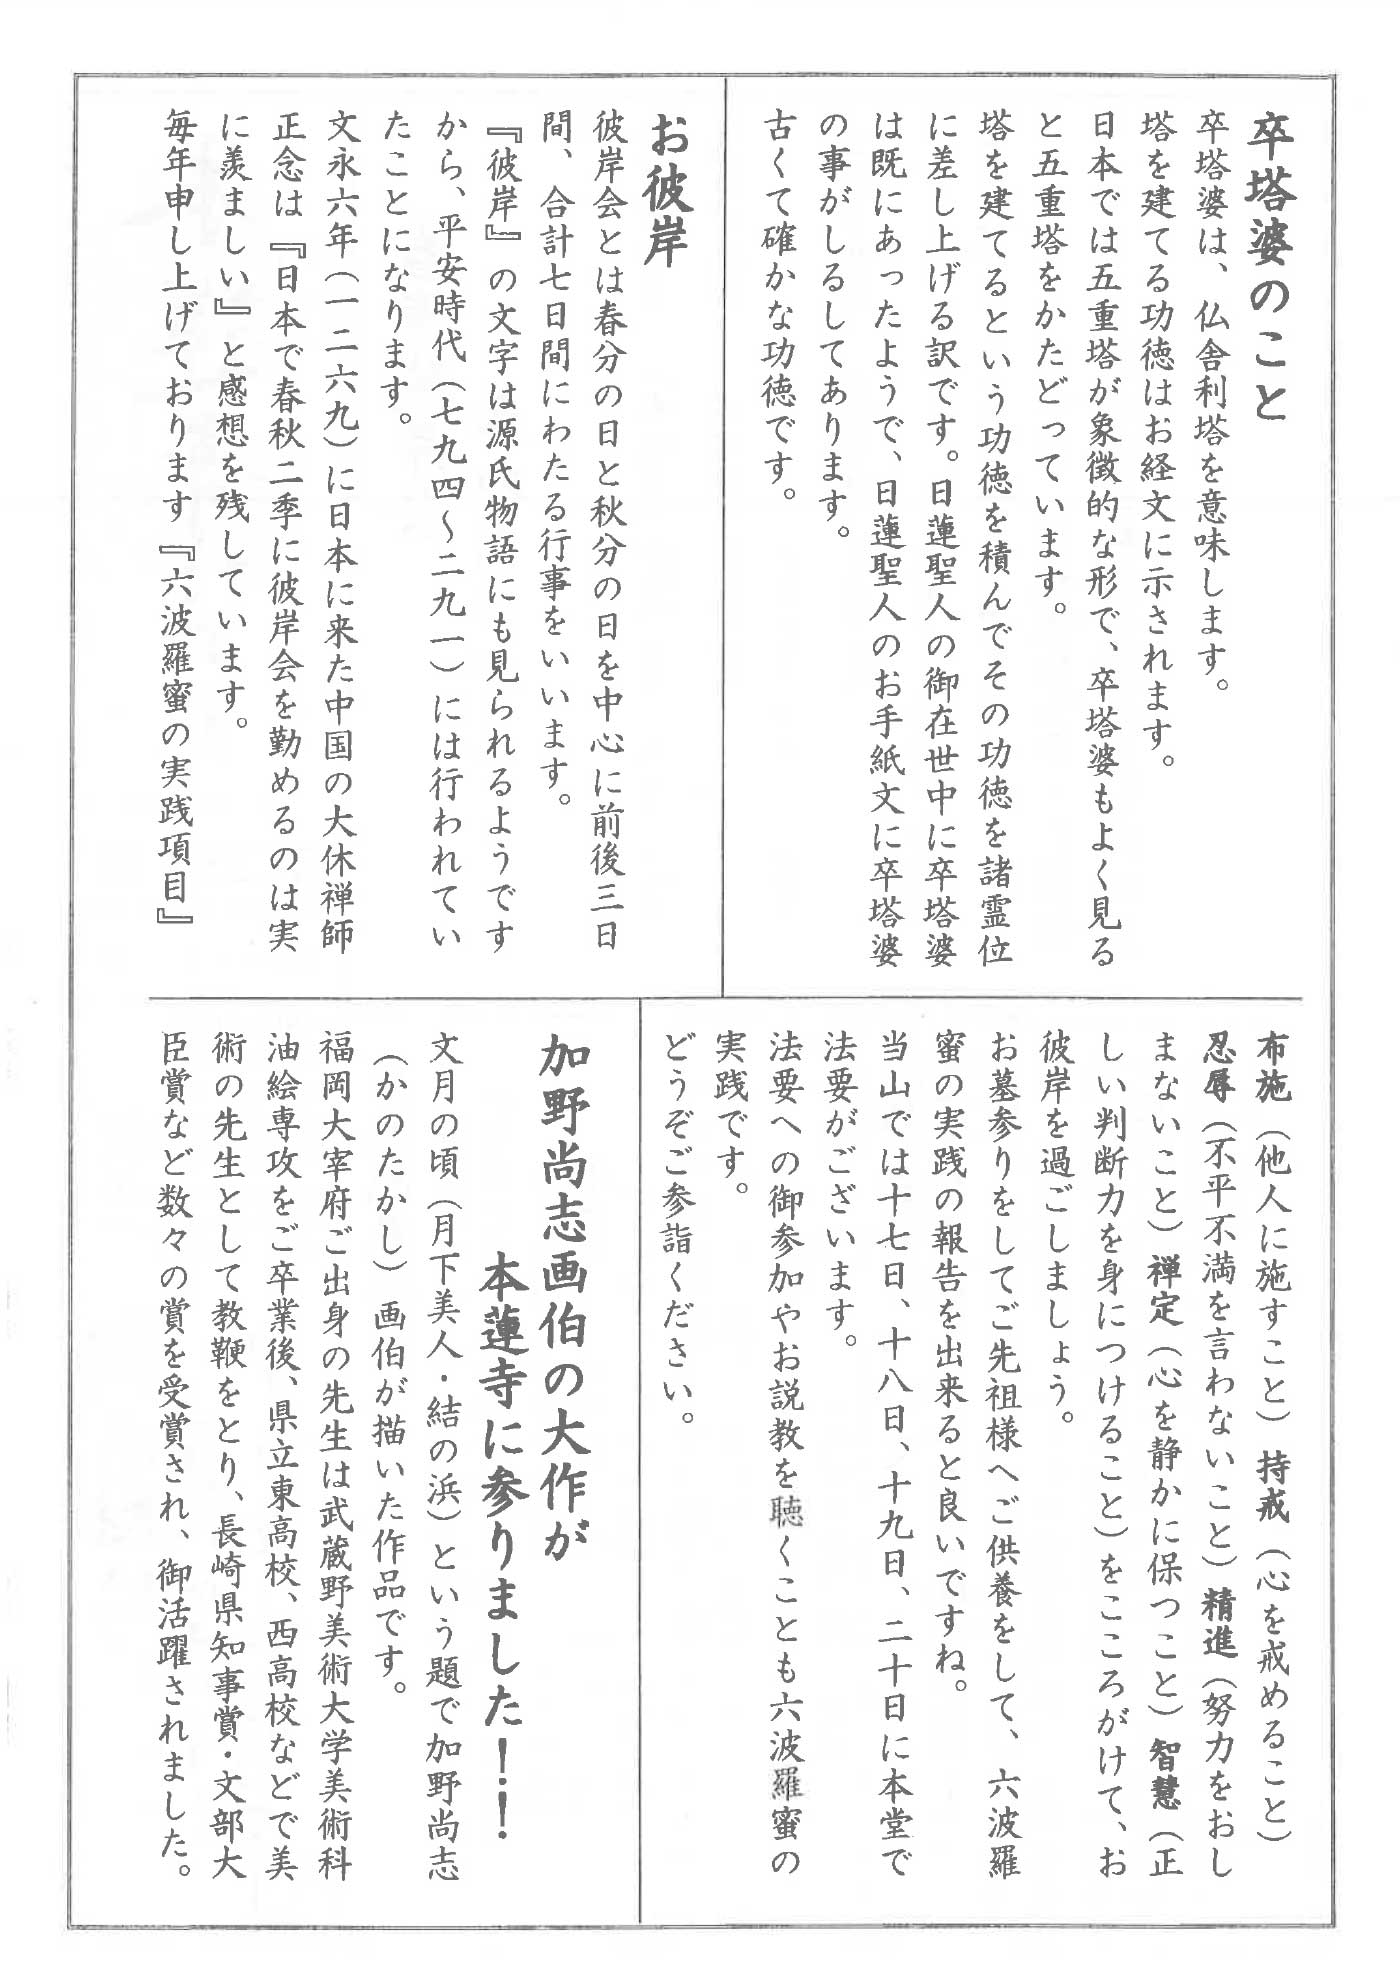 卒塔婆のこと
卒塔婆は、仏舎利塔を意味します。
塔を建てる功徳はお経文に示されます。
日本では五重塔が象徴的な形で、卒塔婆もよく見る
と五重塔をかたどっています。
塔を建てるという功徳を積んでその功徳を諸霊位
に差し上げる訳です。日蓮聖人の御在世中に卒塔婆
は既にあったようで、日蓮聖人のお手紙文に卒塔婆
の事がしるしてあります。
古くて確かな功徳です。
お彼岸
彼岸会とは春分の日と秋分の日を中心に前後三日
間、合計七日間にわたる行事をいいます。
『彼岸』の文字は源氏物語にも見られるようです
から、平安時代（七九四～二九一）には行われてい
たことになります。
文永六年（一二六九）に日本に来た中国の大休禅師
正念は『日本で春秋二季に彼岸会を勤めるのは実
に羨ましい』と感想を残しています。
毎年申し上げております『六波羅蜜の実践項目』
布施（他人に施すこと）持戒（心を戒めること）
忍辱（不平不満を言わないこと）精進（努力をおし
まないこと）禅定（心を静かに保つこと）智慧（正
しい判断力を身につけること）をこころがけて、お
彼岸を過ごしましょう。
お墓参りをしてご先祖様へご供養をして、六波羅
蜜の実践の報告を出来ると良いですね。
当山では十七日、十八日、十九日、二十日に本堂で
法要がございます。
法要への御参加やお説教を聴くことも六波羅蜜の
実践です。
どうぞご参詣ください。
加野尚志画伯の大作が
本蓮寺に参りました！！
文月の頃（月下美人・結の浜）という題で加野尚志
（かのたかし）画伯が描いた作品です。
福岡大宰府ご出身の先生は武蔵野美術大学美術科
油絵専攻をご卒業後、県立東高校、西高校などで美
術の先生として教鞭をとり、長崎県知事賞・文部大
臣賞など数々の賞を受賞され、御活躍されました。